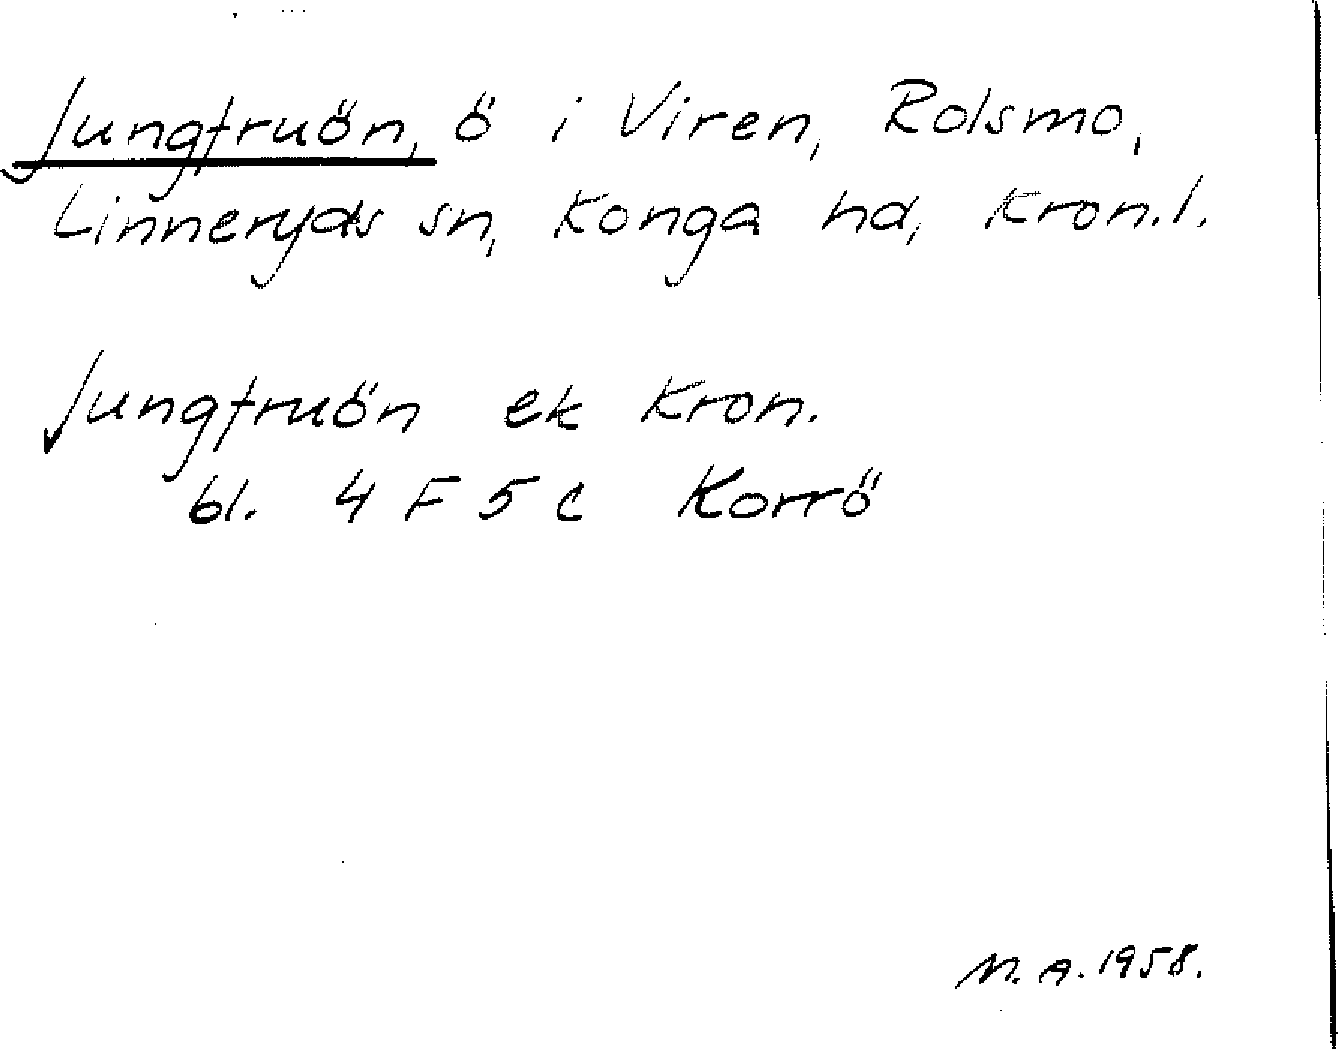 Jungfruön, ö i Viren, Rolsmo,
Linneryds sn, Konga hd, Kron.l.
Jungfruön ek Kron.
bl. 4 F 5 c Korrö
M.A. 1958.